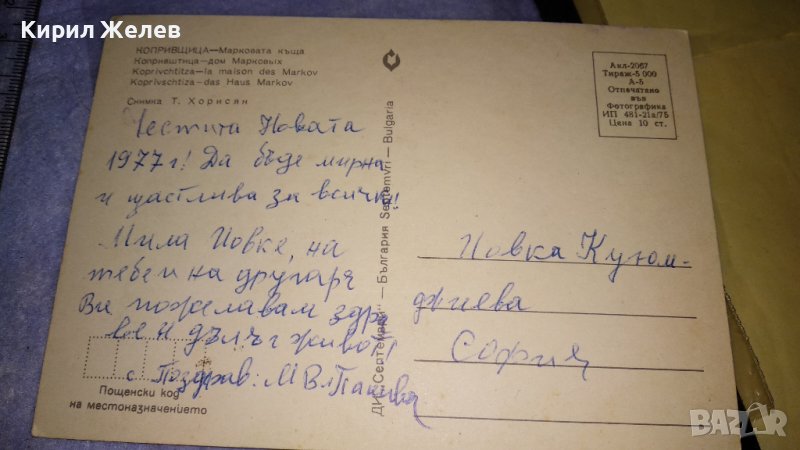 Кирил Желев
КОПРИВЩИЦА—Марковата къща
Коприштица—дом Марковых
Koprivchtitza—la maison des Markov
Koprivschtiza—das Haus Markov
Снимка Т. Хорисян
Честита Новата
1977 г! Да бъде мирна
и щастлива за всички!
Мила Йовке, на
тебе и на другаря
Ви пожелавам здра
ве и дълъг живот
с Поздрав: М Вл
Пощенски код
на местоназначението
ДИ „Септември" — България Septemvri — Bulgaria
Акл-2067
Тираж-5 000
А-6
Отпечатано
във
Фотографика
ИП 481-21а/75
Цена 10 ст.
Йовка Куюм-
джиева
София
BAZAR